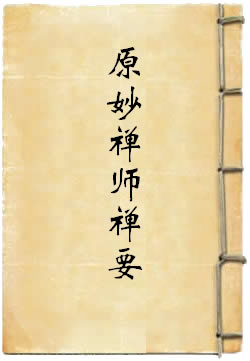 原妙禅师禅要